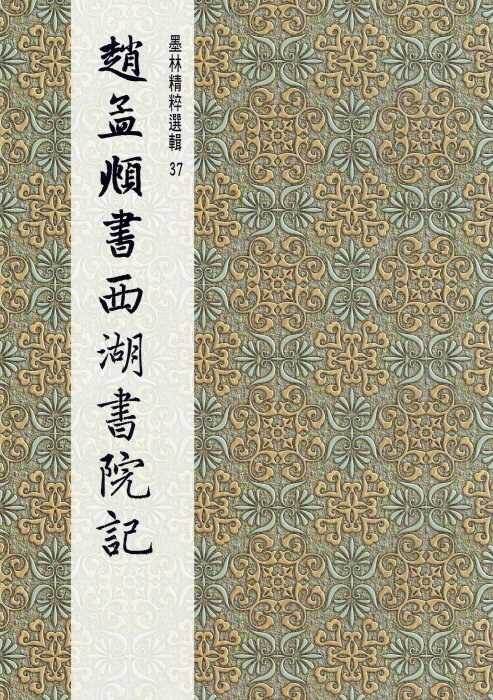 墨林精粹選輯 37
趙孟頫書西湖書院記